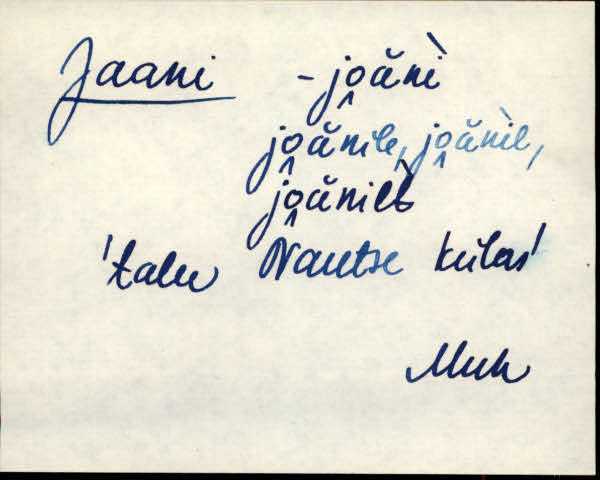 Jaani - jo̭ăǹi
jo̭ănile, jo̭ăǹil,
jo̭ănilt̀
'talu Nautse külas'
Muh